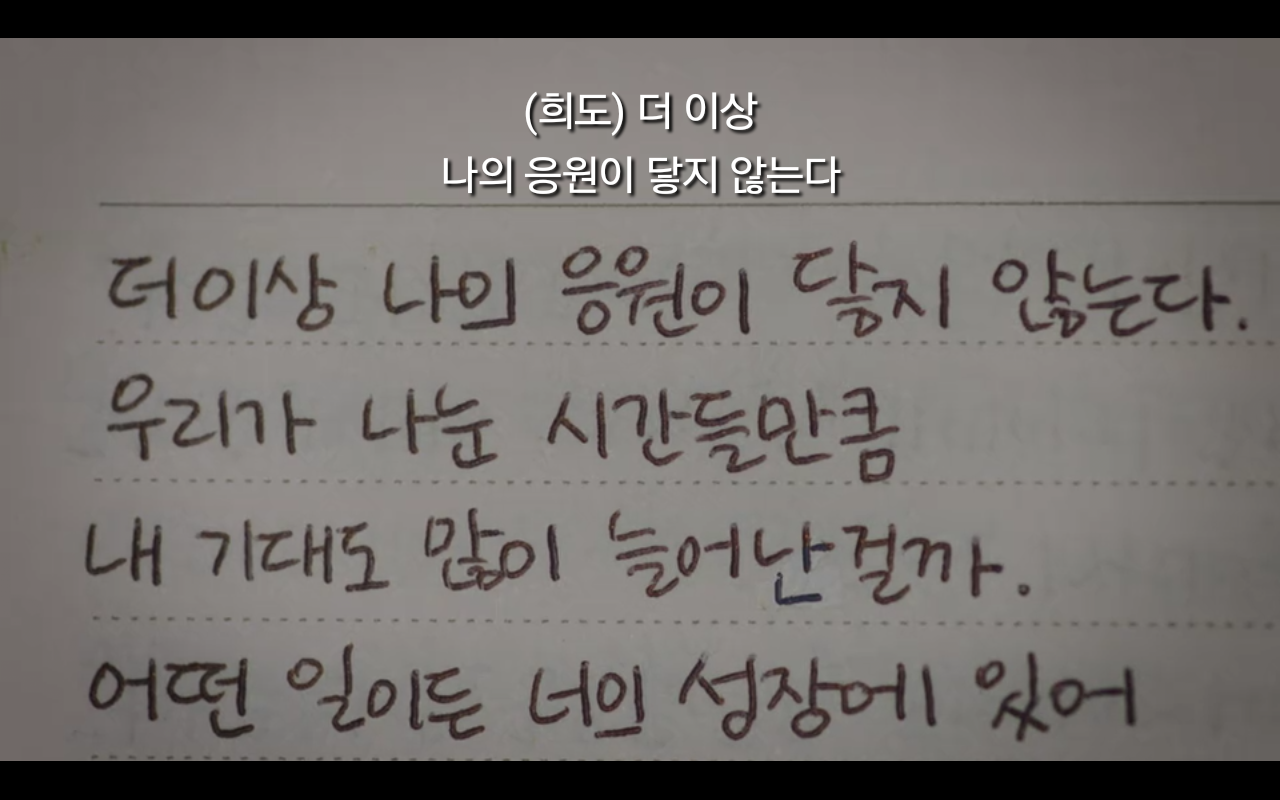 (희도) 더 이상
나의 응원이 닿지 않는다
더이상 나의 응원이 닿지 않는다.
우리가 나눈 시간들만큼
내 기대도 많이 늘어난걸까.
어떤 일이든 너의 성장에 있어